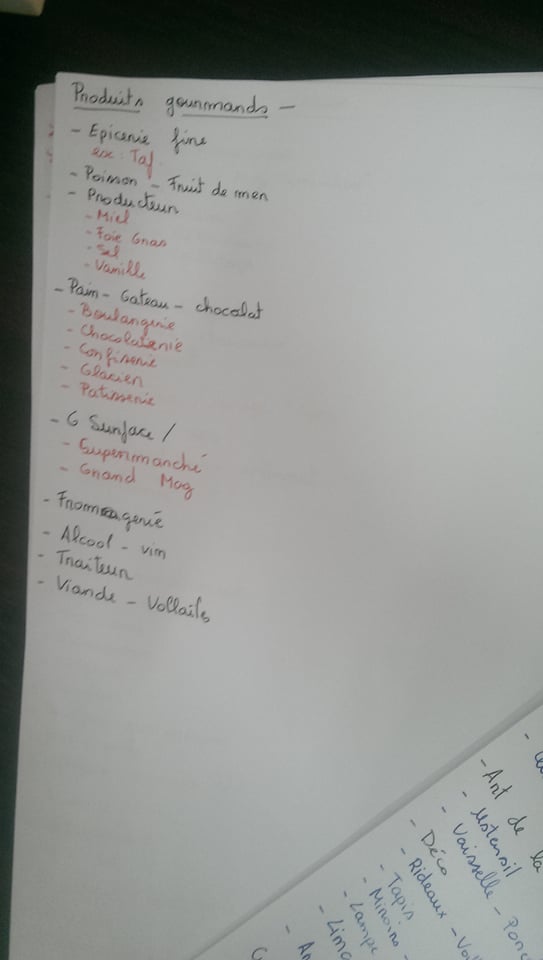 Produits gourmands -
- Epicerie fine
ex: Taf
- Poisson - Fruit de mer
- Producteur
- Miel
- Foie Gras
- Sel
- Vanille
- Pain - Gateau - chocolat
- Boulangerie
- Chocolaterie
- Confiserie
- Glacier
- Patisserie
- G Surface /
- Supermarché
- Grand Mag
- Fromagerie
- Alcool - vin
- Traiteur
- Viande - Vollaile
- Art de la
- Ustensil
- Vaisselle -
- Déco
- Rideaux -
- Tapis
- Miroirs -
- Lampe